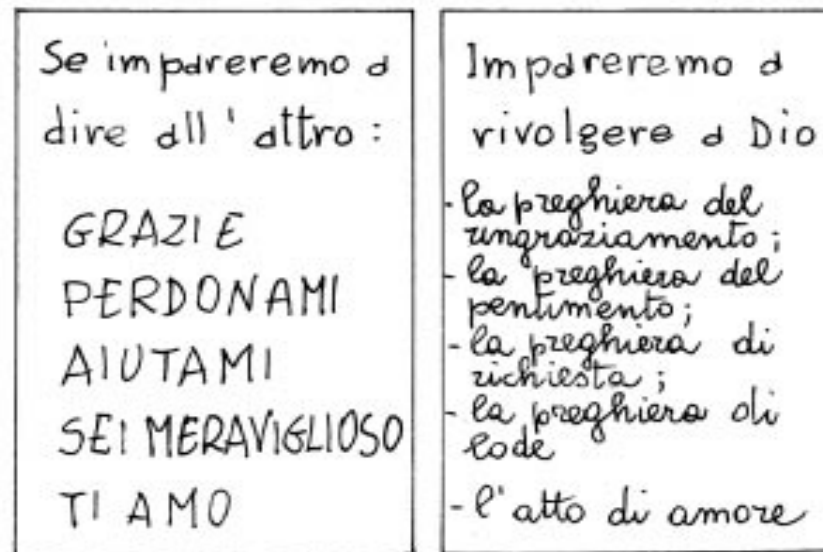 Se impareremo a
dire all'altro:
GRAZIE
PERDONAMI
AIUTAMI
SEI MERAVIGLIOSO
TI AMO
Impareremo a
rivolgere a Dio
- la preghiera del
ringraziamento;
- la preghiera del
pentimento;
- la preghiera di
richiesta;
- la preghiera di
lode
- l'atto di amore